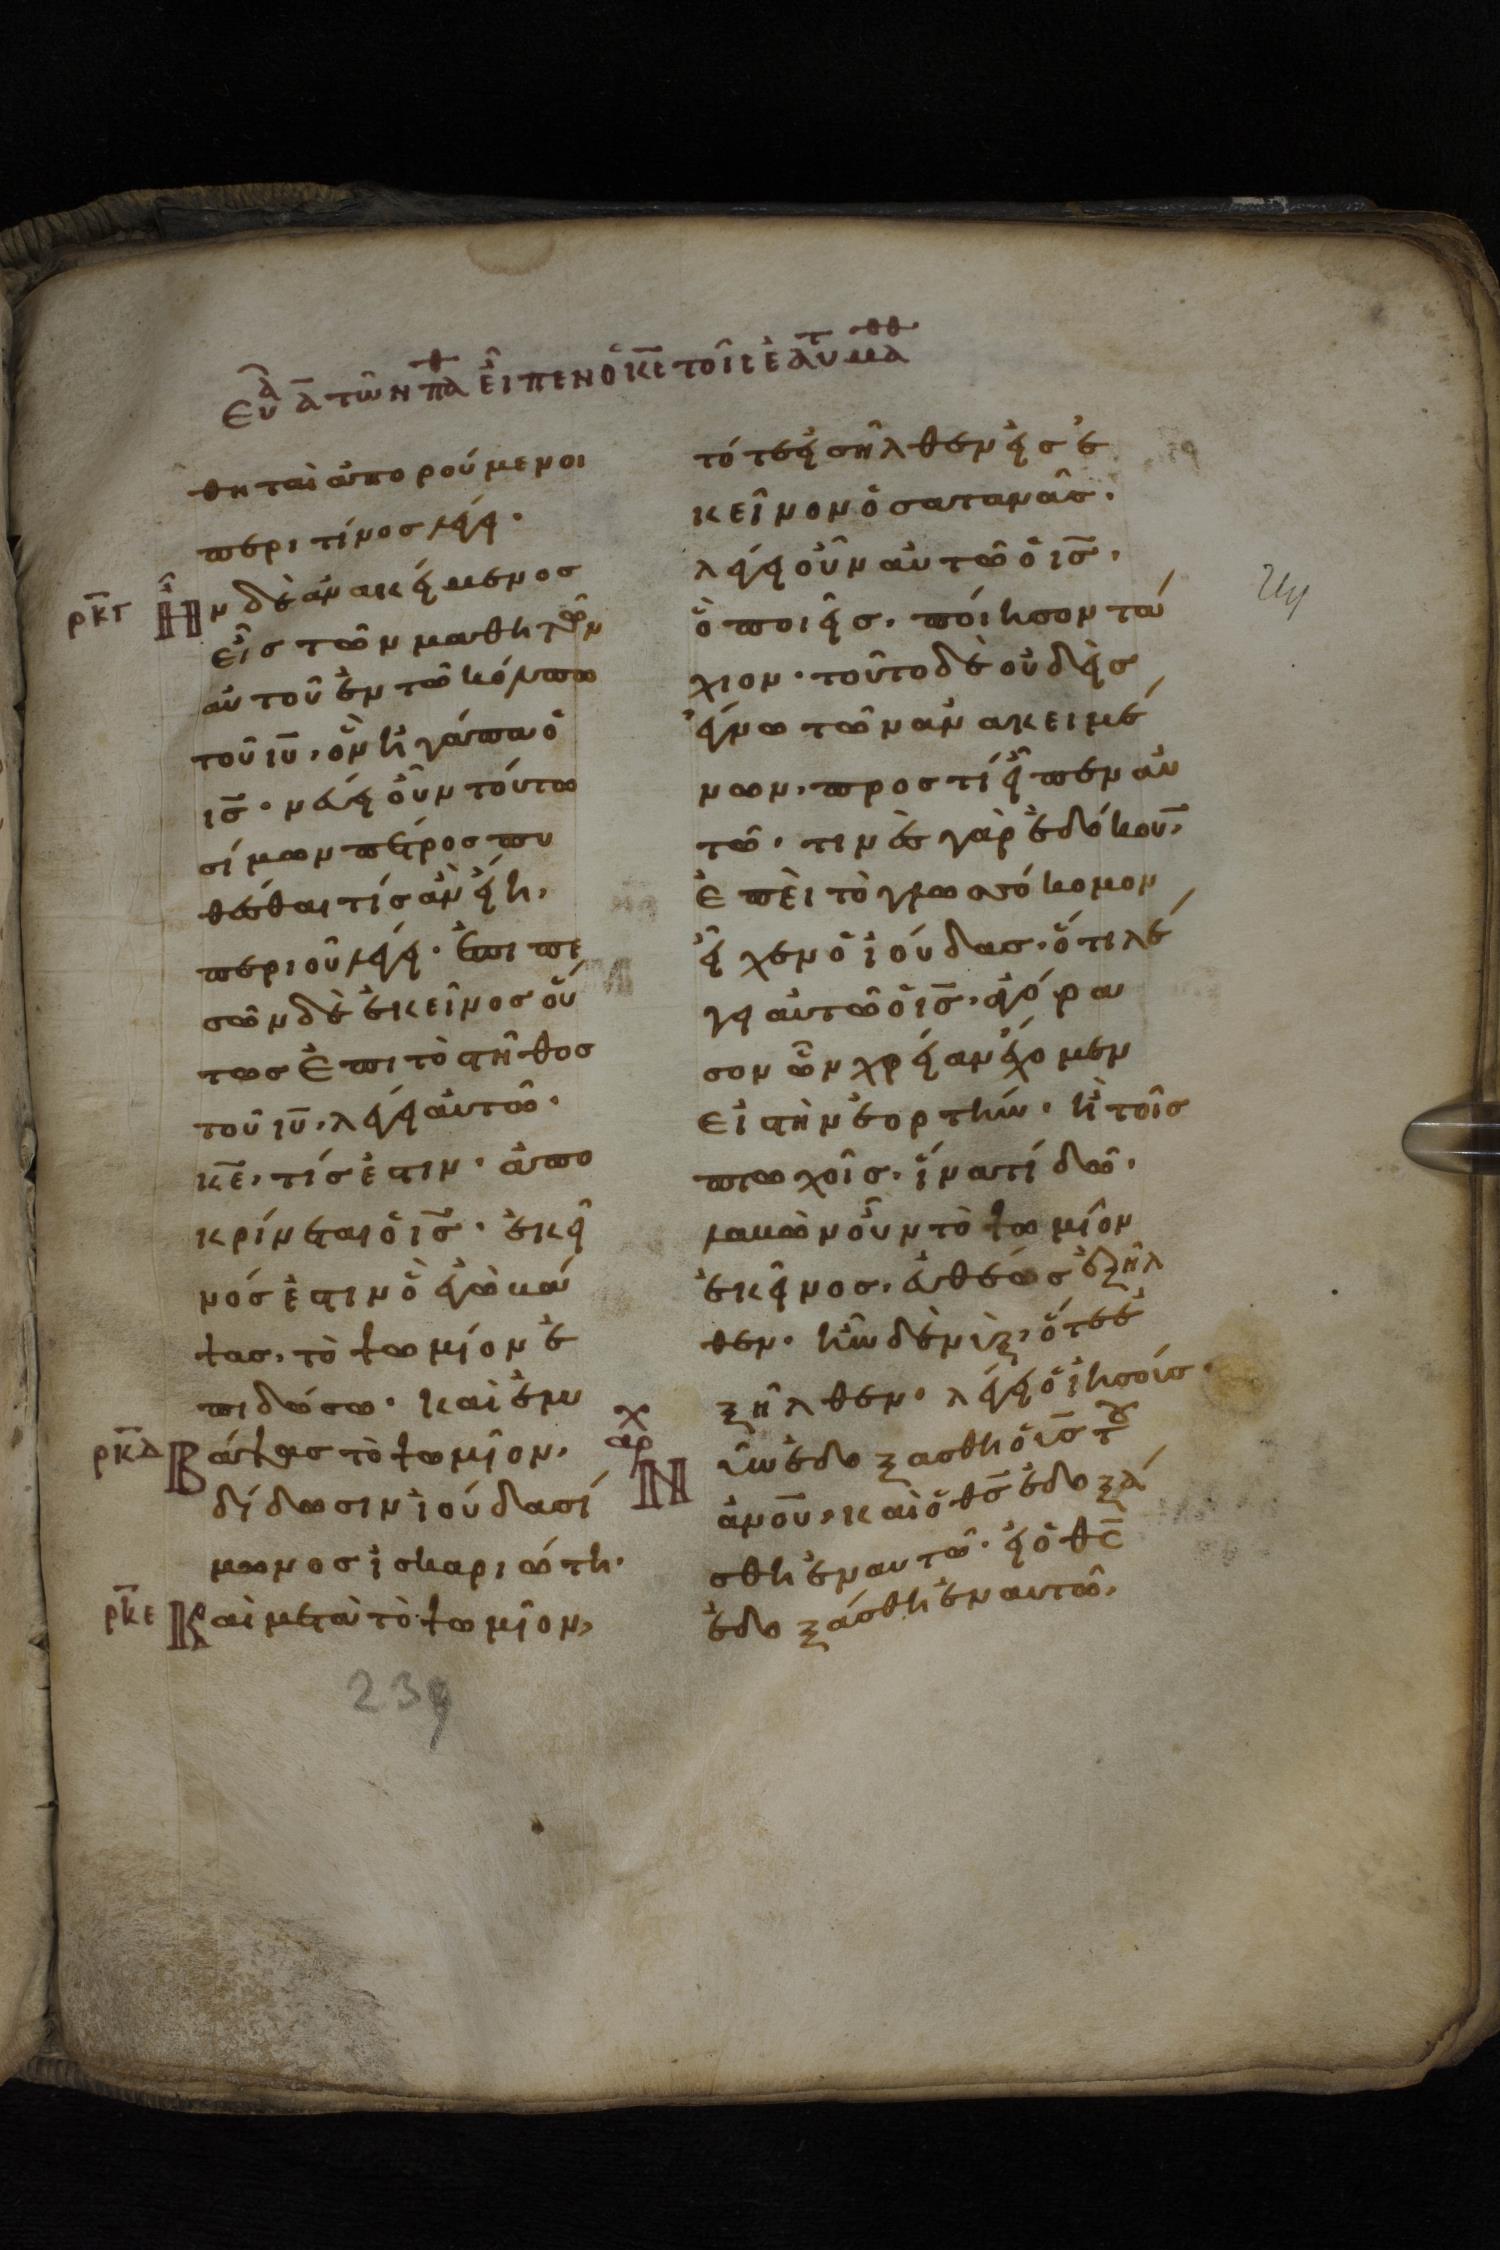 Εὐᾱ ᾱ τῶν πᾱθ εἶπεν ὁ κ̅ς̅ τοῖς ἑαυτ μαθθ
θηταὶ ἀπορούμενοι
περι τίνος λέγει·
ρκγ Ἦν δὲ ἀνακείμενος
εἷς τῶν μαθητῶν
αὐτοῦ ἐν τῶ κόλπω
τοῦ ιυ̅, ὃν ἠγάπα ὁ
ις̅· νεύει οὖν τούτω
σίμων πέτρος πυ
θέσθαι τίς ἂν εἴη,
περι οὗ λέγει· ἐπιπε
σῶν δὲ ἐκεῖνος οὕ
τως ἐπι τὸ στῆθος
τοῦ ιυ̅, λέγει αὐτῶ·
κε̅, τίς ἐστιν· ἀπο
κρίνεται ὁ ις̅· ἐκεῖ
νός ἐστιν ὧ ἐγὼ βά
ψας, τὸ ψωμίον ἐ
πιδώσω· καὶ ἐμ
ρκδ Βάψας τὸ ψωμῖον,
δίδωσιν ἰούδα σί
μωνος ἰσκαριώτη·
ρκε Καὶ μετὰ τὸ ψωμῖον,
τότε εἰσῆλθεν εἰς ἐ
κεῖνον ὁ σατανᾶς·
λέγει οὖν αὐτῶ ὁ ις̅,
ὃ ποιεῖς, ποίησον τά
χιον· τοῦτο δὲ οὐδεὶς
ἔγνω τῶν ἀνακειμέ
νων, προς τί εἶπεν αὐ
τῶ· τινὲς γὰρ ἐδόκου̅,
ἐπεὶ τὸ γλωσσόκομον
εἶχεν ὁ ἰούδας, ὅτι λέ
γει αὐτῶ ὁ ις̅, ἀγόρα
σον ὧν χρείαν ἔχομεν
εἰς τὴν ἑορτήν· ἢ τοῖς
πτωχοῖς, ἵνα τί δῶ·
λαβὼν οὖν τὸ ψωμῖον
ἐκεῖνος, εὐθέως ἐξῆλ
θεν· ἦν δὲ νὺξ, ὅτε ἐ
ξῆλθεν· λέγει ὁ ἰησοῖς·
χ αρ Νῦν ἐδοξάσθη ὁ ις̅ τοῦ
ἀνου̅, καὶ ὁ θς̅ ἐδοξά
σθη ἐν αυτῶ· εἰ ὁ θς̅
ἐδοξάσθη ἐν αυτῶ,
239